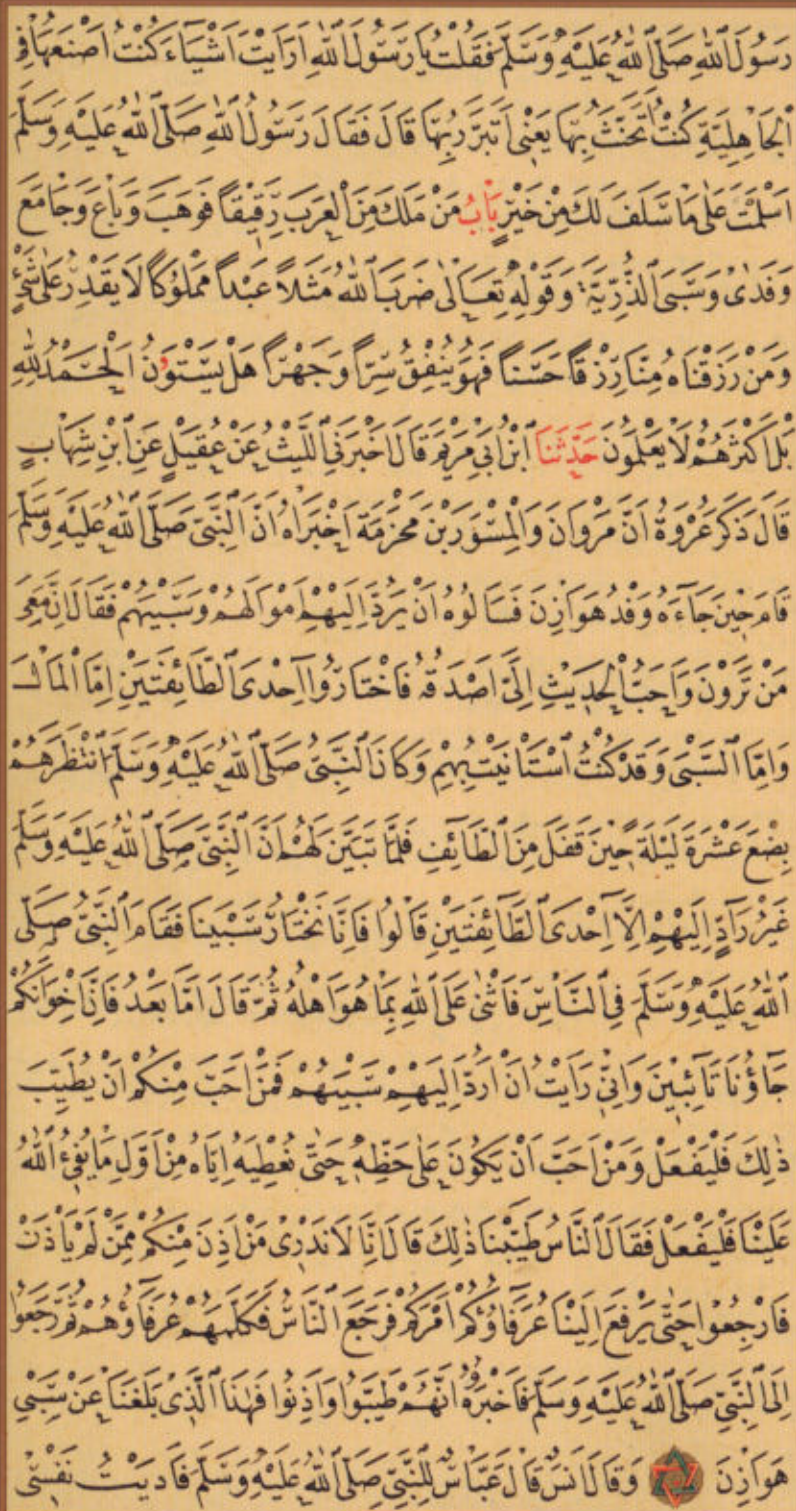 رَسُولَ ٱللهِ صَلَّى ٱللهُ عَلَيْهِ وَسَلَّمَ فَقُلْتُ يَا رَسُولَ ٱللهِ اَرَاَيْتَ اَشْيَاءَ كُنْتُ اَصْنَعُهَا فِى
ٱلْجَاهِلِيَّةِ كُنْتُ اَتَحَنَّثُ بِهَا يَعْنِى اَتَبَرَّرُ بِهَا قَالَ فَقَالَ رَسُولُ ٱللهِ صَلَّى ٱللهُ عَلَيْهِ وَسَلَّمَ
اَسْلَمْتَ عَلٰى مَا سَلَفَ لَكَ مِنْ خَيْرٍ بَابُ مَنْ مَلَكَ مِنَ ٱلْعَرَبِ رَقِيقًا فَوَهَبَ وَبَاعَ وَجَامَعَ
وَفَدٰى وَسَبَى ٱلذُّرِّيَّةَ وَقَوْلِهِ تَعَالٰى ضَرَبَ ٱللهُ مَثَلاً عَبْدًا مَمْلُوكًا لَا يَقْدِرُ عَلٰى شَىْءٍ
وَمَنْ رَزَقْنَاهُ مِنَّا رِزْقًا حَسَنًا فَهُوَ يُنْفِقُ سِرًّا وَجَهْرًا هَلْ يَسْتَوُونَ اَلْحَمْدُ لِلّٰهِ
بَلْ اَكْثَرُهُمْ لَا يَعْلَمُونَ حَدَّثَنَا ٱبْنُ اَبِى مَرْيَمَ قَالَ اَخْبَرَنِى ٱللَّيْثُ عَنْ عُقَيْلٍ عَنِ ٱبْنِ شِهَابٍ
قَالَ ذَكَرَ عُرْوَةُ اَنَّ مَرْوَانَ وَٱلْمِسْوَرَ بْنَ مَخْرَمَةَ اَخْبَرَاهُ اَنَّ ٱلنَّبِىَّ صَلَّى ٱللهُ عَلَيْهِ وَسَلَّمَ
قَامَ حِينَ جَآءَهُ وَفْدُ هَوَازِنَ فَسَاَلُوهُ اَنْ يَرُدَّ اِلَيْهِمْ اَمْوَالَهُمْ وَسَبْيَهُمْ فَقَالَ اِنَّ مَعِىَ
مَنْ تَرَوْنَ وَاَحَبُّ ٱلْحَدِيثِ اِلَىَّ اَصْدَقُهُ فَٱخْتَارُوا اِحْدَى ٱلطَّائِفَتَيْنِ اِمَّا ٱلْمَالَ
وَاِمَّا ٱلسَّبْىَ وَقَدْ كُنْتُ ٱسْتَاْنَيْتُ بِهِمْ وَكَانَ ٱلنَّبِىُّ صَلَّى ٱللهُ عَلَيْهِ وَسَلَّمَ ٱنْتَظَرَهُمْ
بِضْعَ عَشْرَةَ لَيْلَةً حِينَ قَفَلَ مِنَ ٱلطَّائِفِ فَلَمَّا تَبَيَّنَ لَهُمْ اَنَّ ٱلنَّبِىَّ صَلَّى ٱللهُ عَلَيْهِ وَسَلَّمَ
غَيْرُ رَآدٍّ اِلَيْهِمْ اِلَّا اِحْدَى ٱلطَّائِفَتَيْنِ قَالُوا فَاِنَّا نَخْتَارُ سَبْيَنَا فَقَامَ ٱلنَّبِىُّ صَلَّى
ٱللهُ عَلَيْهِ وَسَلَّمَ فِى ٱلنَّاسِ فَاَثْنٰى عَلَى ٱللهِ بِمَا هُوَ اَهْلُهُ ثُمَّ قَالَ اَمَّا بَعْدُ فَاِنَّ اِخْوَانَكُمْ
جَاؤُنَا تَآئِبِينَ وَاِنِّى رَاَيْتُ اَنْ اَرُدَّ اِلَيْهِمْ سَبْيَهُمْ فَمَنْ اَحَبَّ مِنْكُمْ اَنْ يُطَيِّبَ
ذٰلِكَ فَلْيَفْعَلْ وَمَنْ اَحَبَّ اَنْ يَكُونَ عَلٰى حَظِّهِ حَتّٰى نُعْطِيَهُ اِيَّاهُ مِنْ اَوَّلِ مَا يُفِىءُ ٱللهُ
عَلَيْنَا فَلْيَفْعَلْ فَقَالَ ٱلنَّاسُ طَيَّبْنَا ذٰلِكَ قَالَ اِنَّا لَا نَدْرِى مَنْ اَذِنَ مِنْكُمْ مِمَّنْ لَمْ يَاْذَنْ
فَارْجِعُوا حَتّٰى يَرْفَعَ اِلَيْنَا عُرَفَاؤُكُمْ اَمْرَكُمْ فَرَجَعَ ٱلنَّاسُ فَكَلَّمَهُمْ عُرَفَاؤُهُمْ ثُمَّ رَجَعُوا
اِلَى ٱلنَّبِىِّ صَلَّى ٱللهُ عَلَيْهِ وَسَلَّمَ فَاَخْبَرُوهُ اَنَّهُمْ طَيَّبُوا وَاَذِنُوا فَهٰذَا ٱلَّذِى بَلَغَنَا عَنْ سَبْىِ
هَوَازِنَ وَقَالَ اَنَسٌ قَالَ عَبَّاسٌ لِلنَّبِىِّ صَلَّى ٱللهُ عَلَيْهِ وَسَلَّمَ فَادَيْتُ نَفْسِى